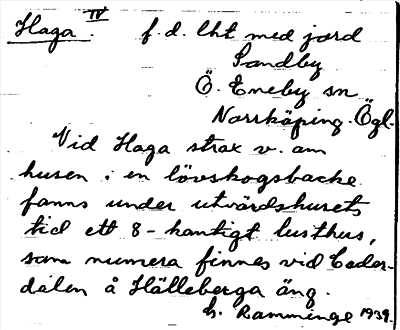 Haga. IV f.d. lht med jord
Sandby
Ö. Eneby sn
Norrköping. Ögl.
Vid Haga strax v. om
husen i en lövskogsbacke
fanns under utvärdshusets
tid ett 8-kantigt lusthus,
som numera finnes vid Ceder-
dalen å Hälleberga äng.
h. Ramminge 1939.